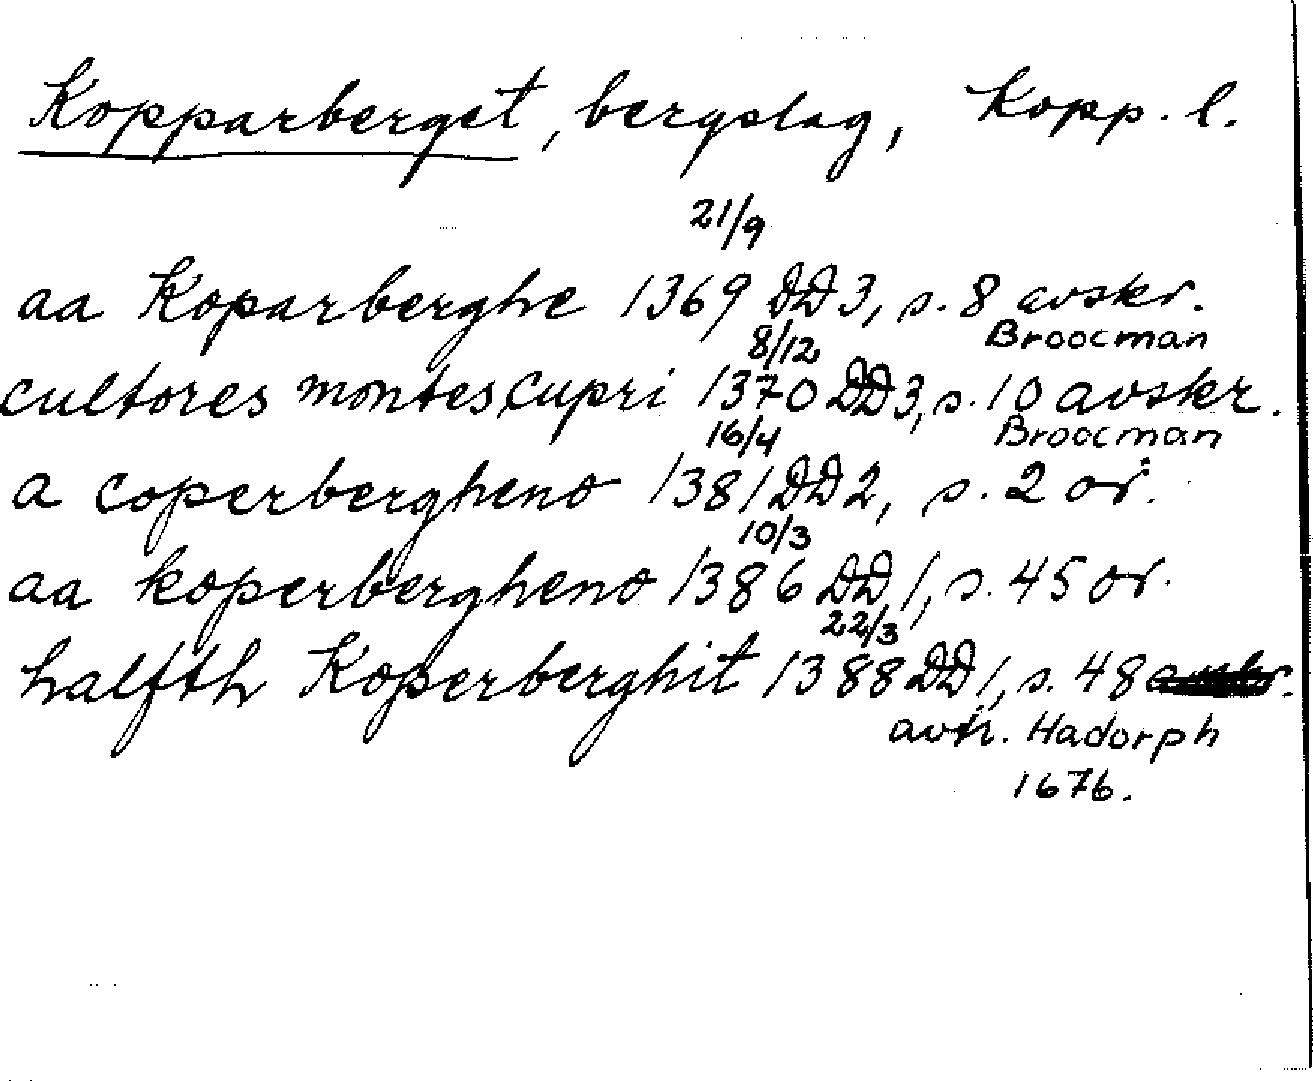 Kopparberget, bergslag, Kopp. l.
21/9
aa Koparberghe 1369 DD 3, s. 8 avskr.
Broocman
8/12
cultores montes cupri 1370 DD 3, s. 10 avskr.
Broocman
16/4
a coperbergheno 1381 DD 2, s. 2 or.
10/3
aa koperbergheno 1386 DD 1, s. 45 or.
22/3
halfth Koperberghit 1388 DD 1, s. 48
avtr. Hadorph
1676.